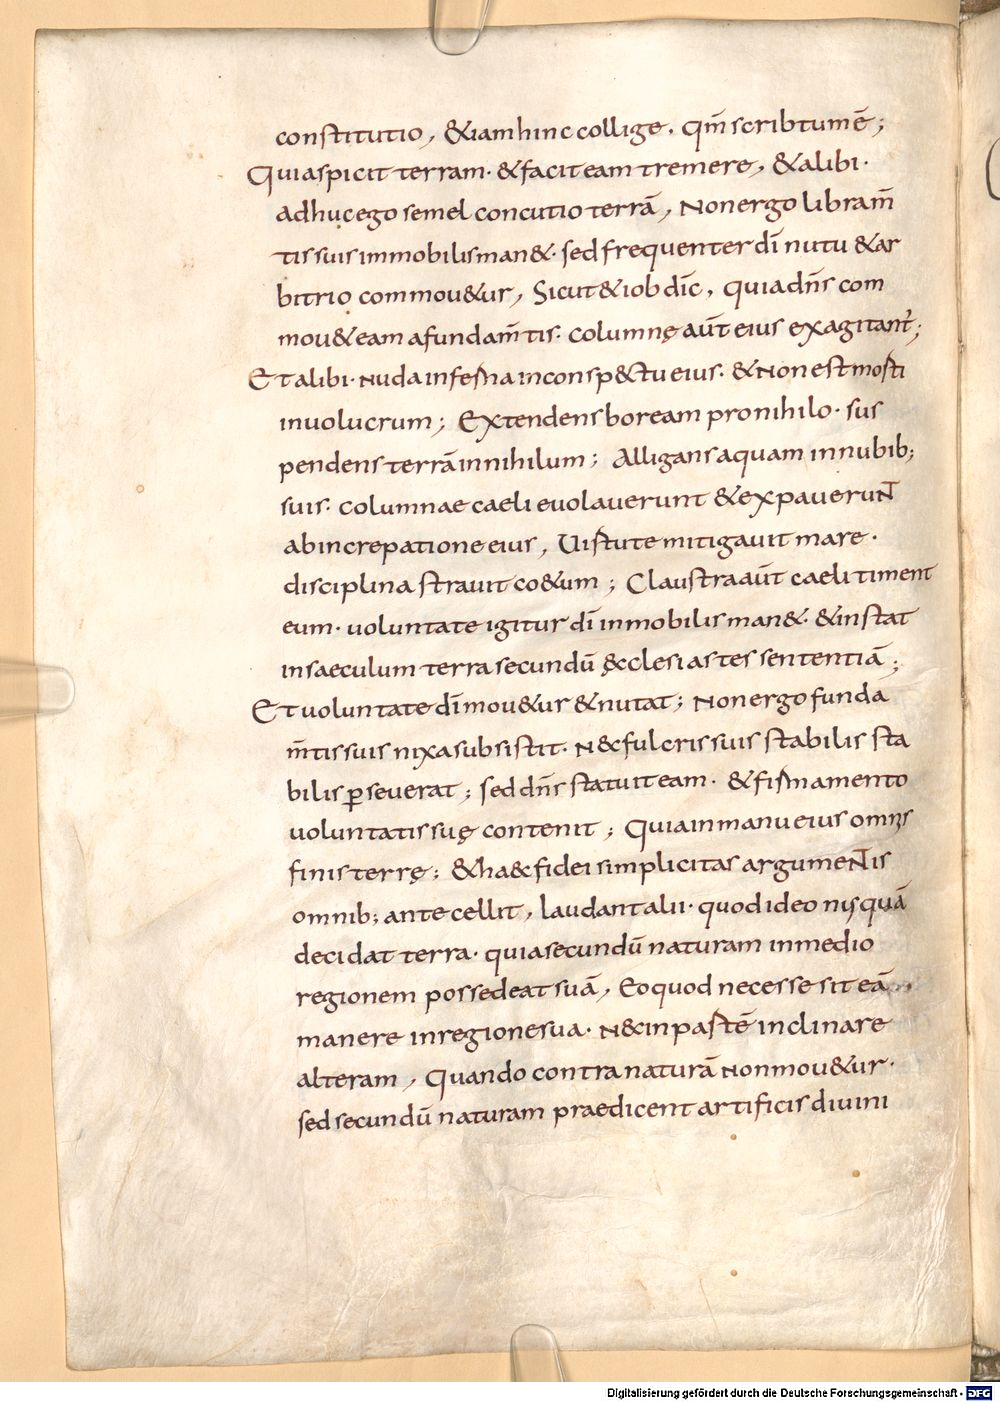 constitutio, &iam hinc collige. qm̄ scribtum ē;
Qui aspicit terram· & facit eam tremere, & alibi·
adhuc ego semel concutio terrā, Non ergo libram̄
tis suis immobilis man&· sed frequenter dī nutu & ar
bitrio commou&ur, Sicut & iob dīc, quia dn̄s com
mou& eam a fundam̄tis· columnę aūt eius exagitant̄;
Et alibi· Nuda inferna in consp&tu eius· & Non est morti
inuolucrum; Extendens boream pro nihilo· sus
pendens terrā in nihilum; Alligans aquam in nubib;
suis· columnae caeli euolauerunt & expauerunt
ab increpatione eius, Uirtute mitigauit mare·
disciplina strauit co&um; Claustra aūt caeli timent
eum· uoluntate igitur dī inmobilis man&· & in stat
in saeculum terra secundū ęclesiastes sententiā;
Et uoluntate dī mou&ur & nutat; Non ergo funda
m̄tis suis nixa subsistit· N& fulcris suis stabilis sta
bilis ꝑseuerat; sed dn̄s statuit eam· & firmamento
uoluntatis suę contenit; Quia in manu eius omnis
finis terrę; & ha& fidei simplicitas argumentis
omnib; antecellit, laudant alii· quod ideo nusquā
decidat terra· quia secundū naturam in medio
regionem possedeat suā, Eo quod necesse sit eā
manere in regione sua· N& in partē inclinare
alteram, Quando contra naturā non mou&ur·
sed secundū naturam praedicent artificis diuini
Digitalisierung gefördert durch die Deutsche Forschungsgemeinschaft · DFG